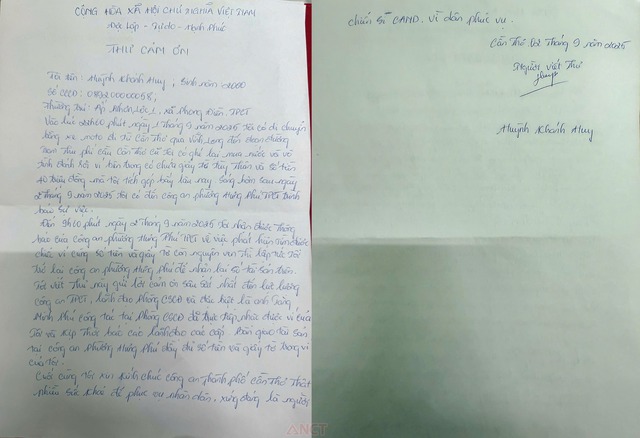 CỘNG HÒA XÃ HỘI CHỦ NGHĨA VIỆT NAM
Độc Lập - Tự do - Hạnh Phúc
THƯ CẢM ƠN
Tôi tên: Huỳnh Khánh Huy, Sinh năm 2000
Số CCCD:
Thường trú: Ấp Nhơn Lộc 1, xã Phong Điền, TPCT
Vào lúc 22h60 phút ngày 1 tháng 9 năm 2025 Tôi có di chuyển
bằng xe moto đi từ Cần Thơ qua Vĩnh Long đến đoạn đường
trạm thu phí cầu Cần Thơ cũ Tôi có ghé lại mua nước và vô
tình đánh rơi ví bên trong có chứa giấy tờ tùy thân và số tiền
40 triệu đồng mà tôi tích góp bấy lâu nay. Sáng hôm sau ngày
2 tháng 9 năm 2025 Tôi có đến công an phường Hưng Phú TPCT trình
báo sự việc.
Đến 9h60 phút ngày 2 tháng 9 năm 2025 Tôi nhận được thông
báo của công an phường Hưng Phú TPCT về việc phát hiện được
chiếc ví cùng số tiền và giấy tờ còn nguyên vẹn thì lập tức Tôi
trở lại công an phường Hưng Phú để nhận lại số tài sản trên.
Tôi viết thư này gửi lời cảm ơn sâu sắc nhất đến lực lượng
công an TPCT, lãnh đạo phòng CSCĐ và đặc biệt là anh
Minh Phú công tác tại phòng CSCĐ đã trực tiếp nhặt được ví của
Tôi và kịp thời báo cáo lãnh đạo các cấp. Bàn giao tài sản
tại công an phường Hưng Phú đầy đủ số tiền và giấy tờ trong ví
của Tôi.
Cuối cùng Tôi xin kính chúc công an thành phố Cần Thơ thật
nhiều sức khỏe để phục vụ nhân dân, xứng đáng là người
chiến sĩ CAND. vì dân phục vụ.
Cần Thơ 02 tháng 9 năm 2025
Người viết thư
Huy
Huỳnh Khánh Huy
ANCT